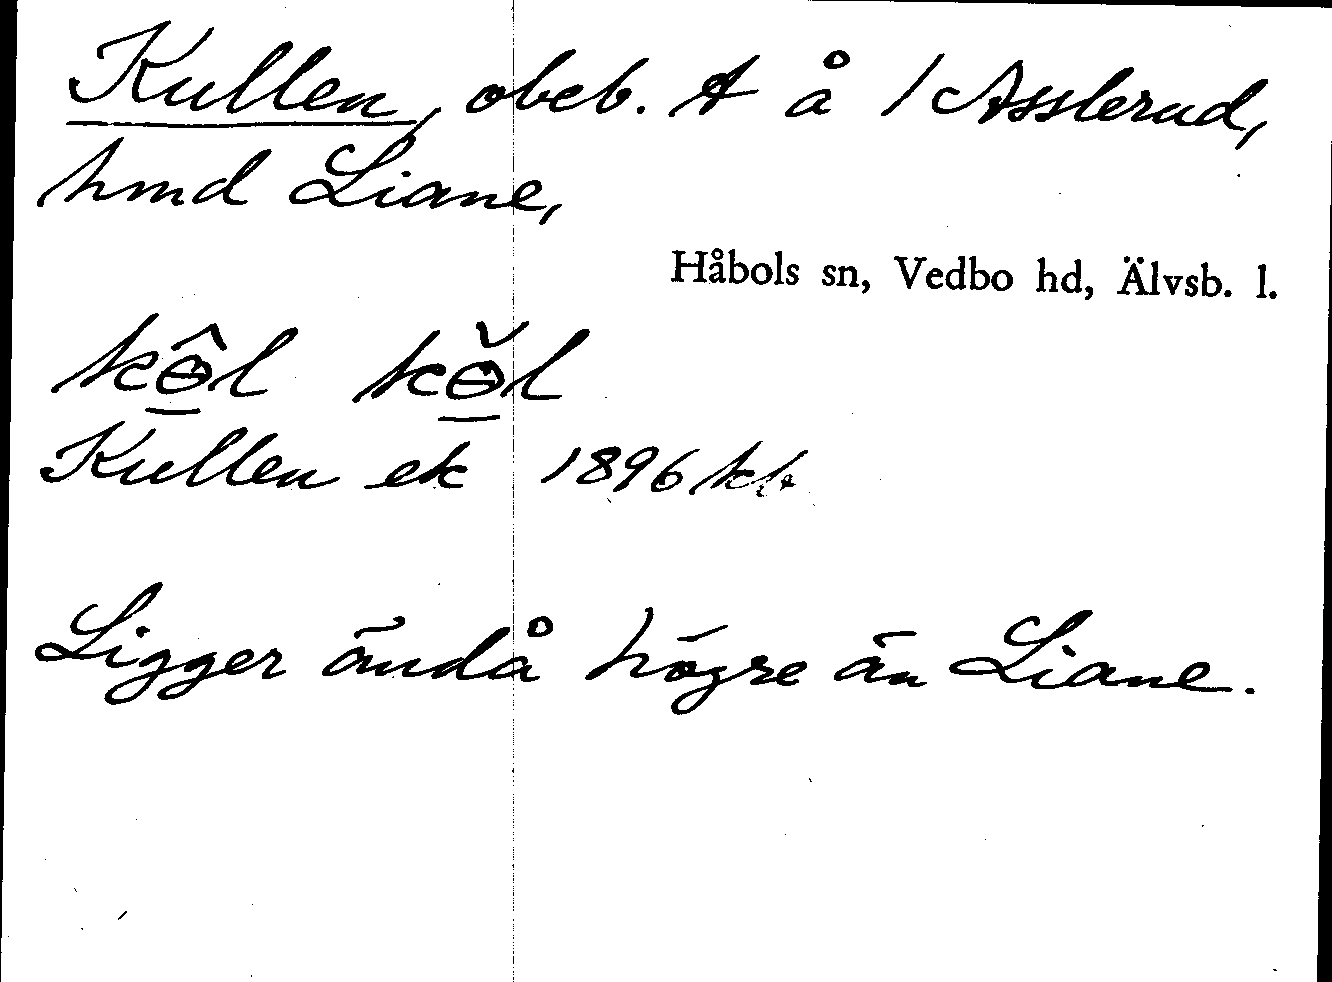 Kullen, obeb. t å 1 Asslerud,
hmd Liane,
Håbols sn, Vedbo hd, Älvsb. l.
kɵ̯̂l kɵ̯̌l
Kullen ek 1896 kb
Ligger ändå högre än Liane.